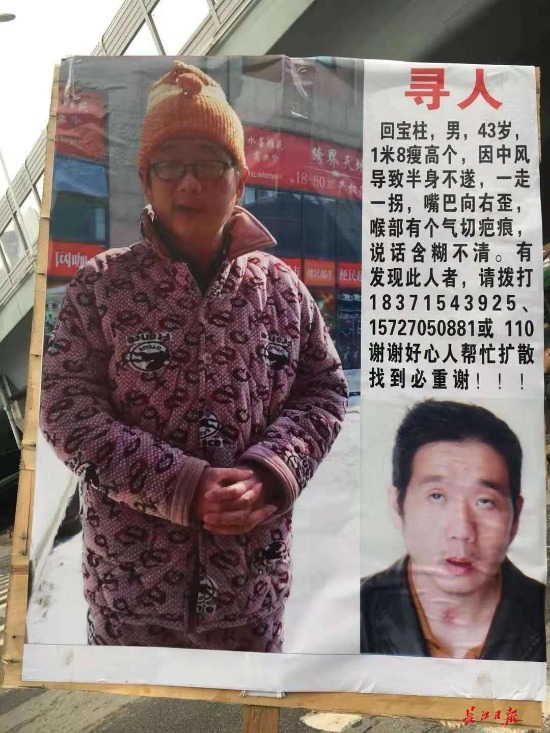 寻人
回宝柱，男，43岁，
1米8瘦高个，因中风
导致半身不遂，一走
一拐，嘴巴向右歪，
喉部有个气切疤痕，
说话含糊不清。有
发现此人者，请拨打
18371543925、
15727050881或 110
谢谢好心人帮忙扩散
找到必重谢！！！
跨界天地
18-60㎡产权
便民超市
便民
长江日报